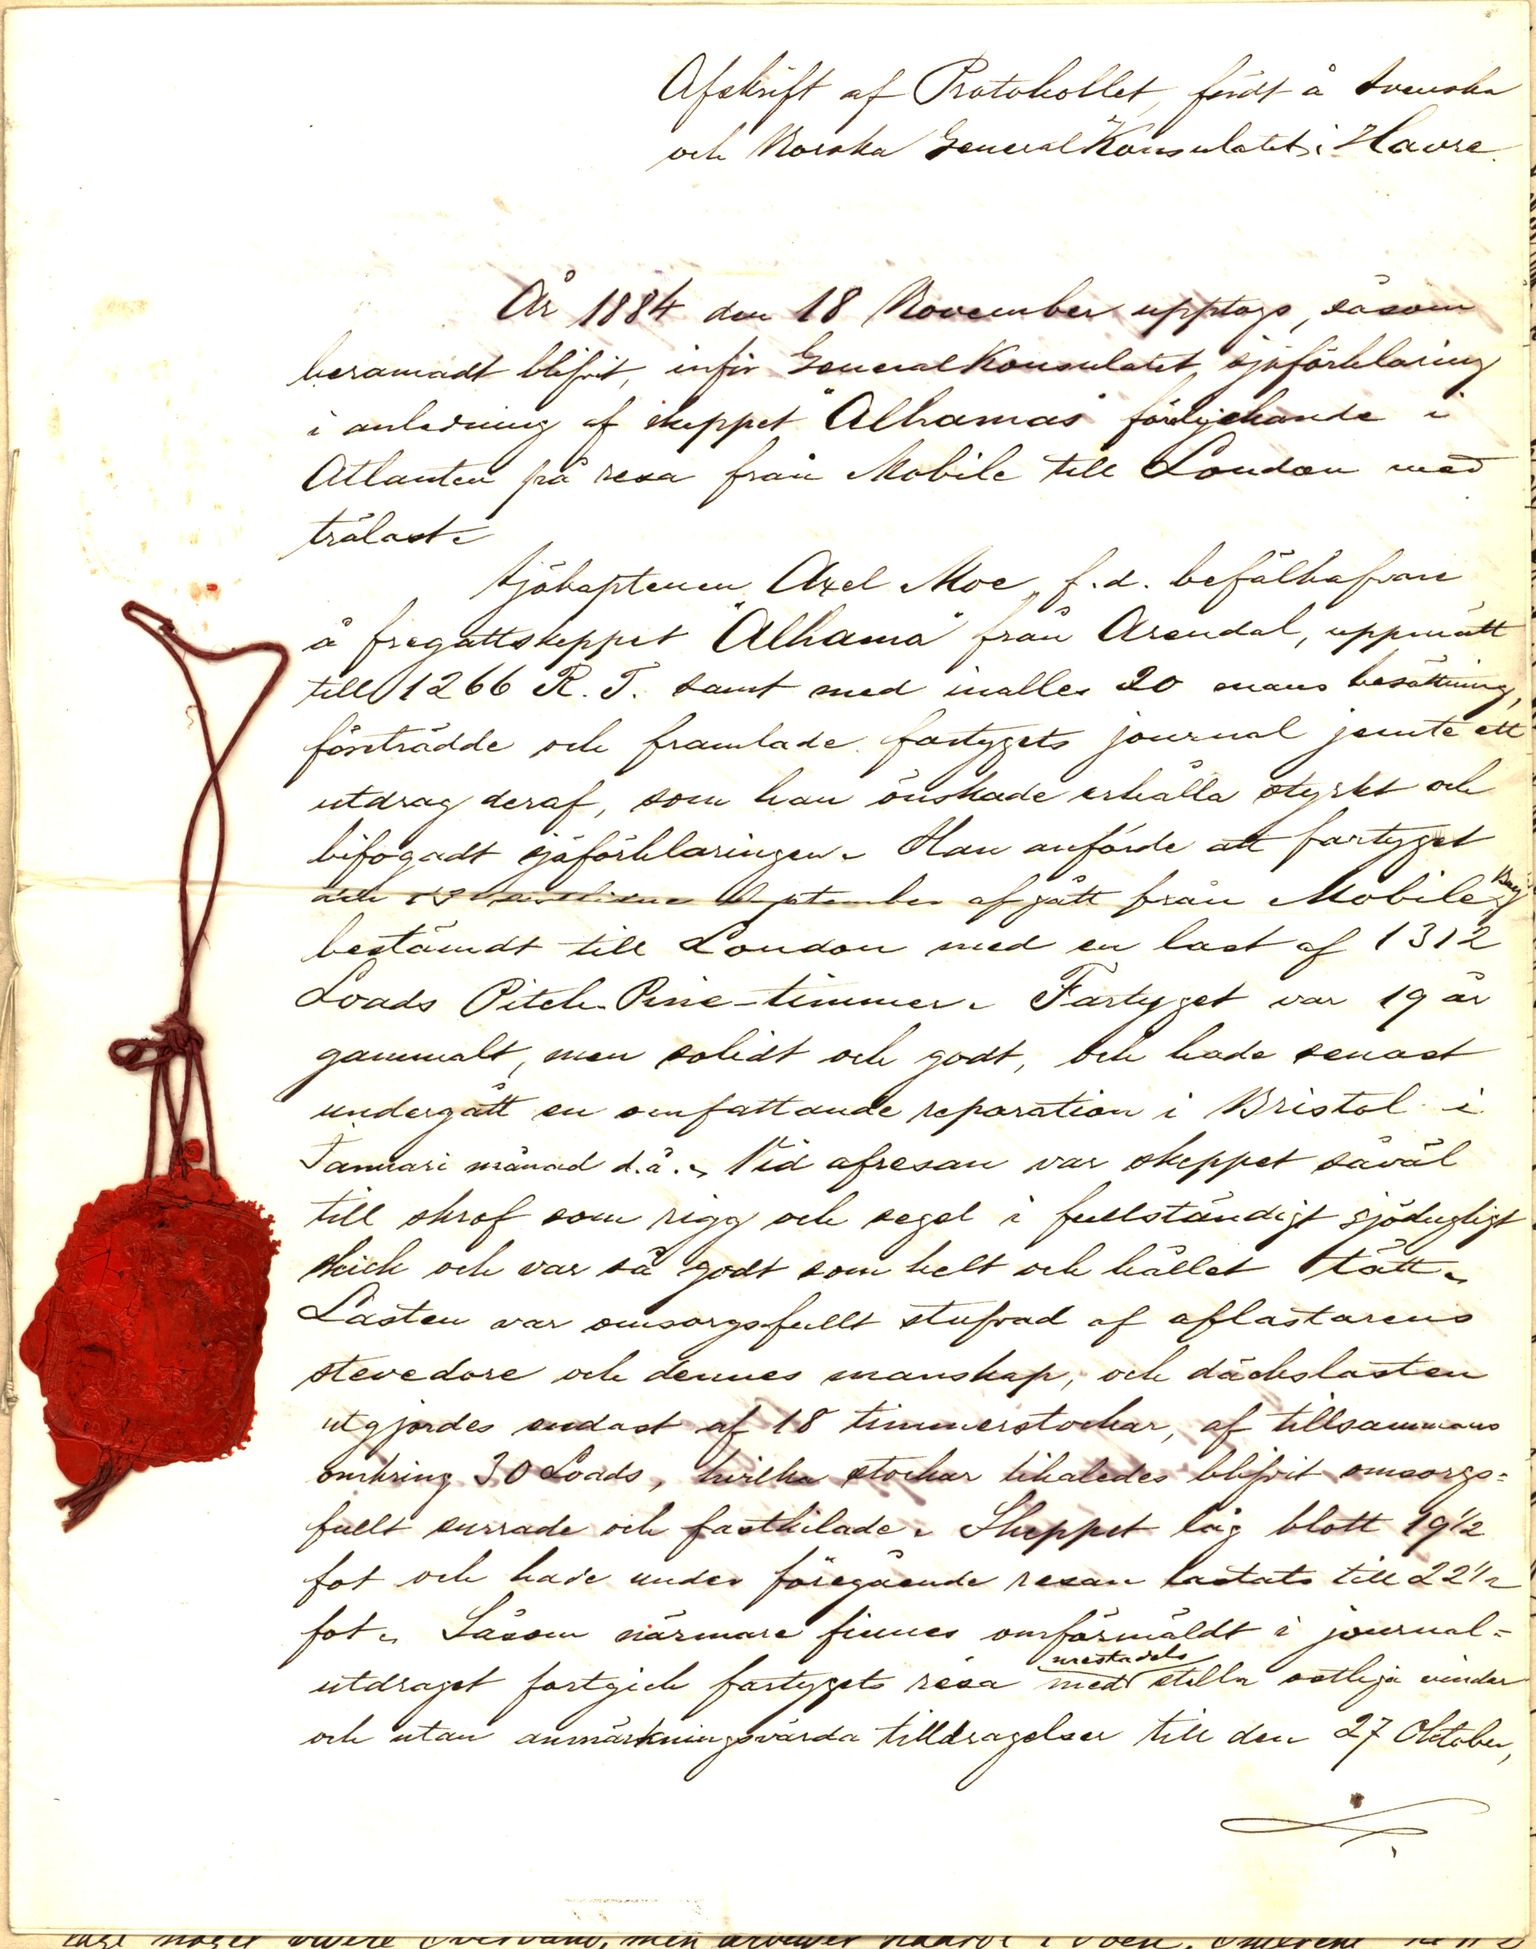 Afskrift af Protokollet, fördt å Svenska
och Norska General Konsulatet i Havre.
År 1884 den 18 November upptogs, såsom
beramadt blifvit, inför General Konsulatet sjöförklaring
i anledning af skeppet "Alhamas" förlyckande i
Atlanten på resa från Mobile till London med
trälast.
Sjökaptenen Axel Moe, f.d. befälhafvare
å fregattskeppet "Alhama" från Arendal, uppmätt
till 1266 R. T. samt med inalles 20 mans besättning,
företrädde och framlade fartygets journal jemte ett
utdrag deraf, som han önskade erhålla styrkt och
bifogadt sjöförklaringen. Han anförde att fartyget
den September afgått från Mobile Bay
bestämdt till London med en last af 1312
Loads Pitch-Pine-timmer. Fartyget var 19 år
gammalt, men solidt och godt, och hade senast
undergått en omfattande reparation i Bristol i
Januari månad d.å. Vid afresan var skeppet såväl
till skrof som rigg och segel i fullständigt sjödugligt
skick och var så godt som helt och hållet tätt.
Lasten var omsorgsfullt stufvad af aflastarens
stevedore och dennes manskap, och däckslasten
utgjordes endast af 18 timmerstockar, af tillsammans
omkring 30 Loads, hvilka stockar likaledes blifvit omsorgs=
fullt surrade och fastkilade. Skeppet låg blott 19 1/2
fot och hade under föregående resan lastats till 22 1/2
fot. Såsom närmare finnes omförmäldt i journal=
utdraget fortgick fartygets resa med mestadels stilla ostliga vindar
och utan anmärkningsvärda tilldragelser till den 27 Oktober,